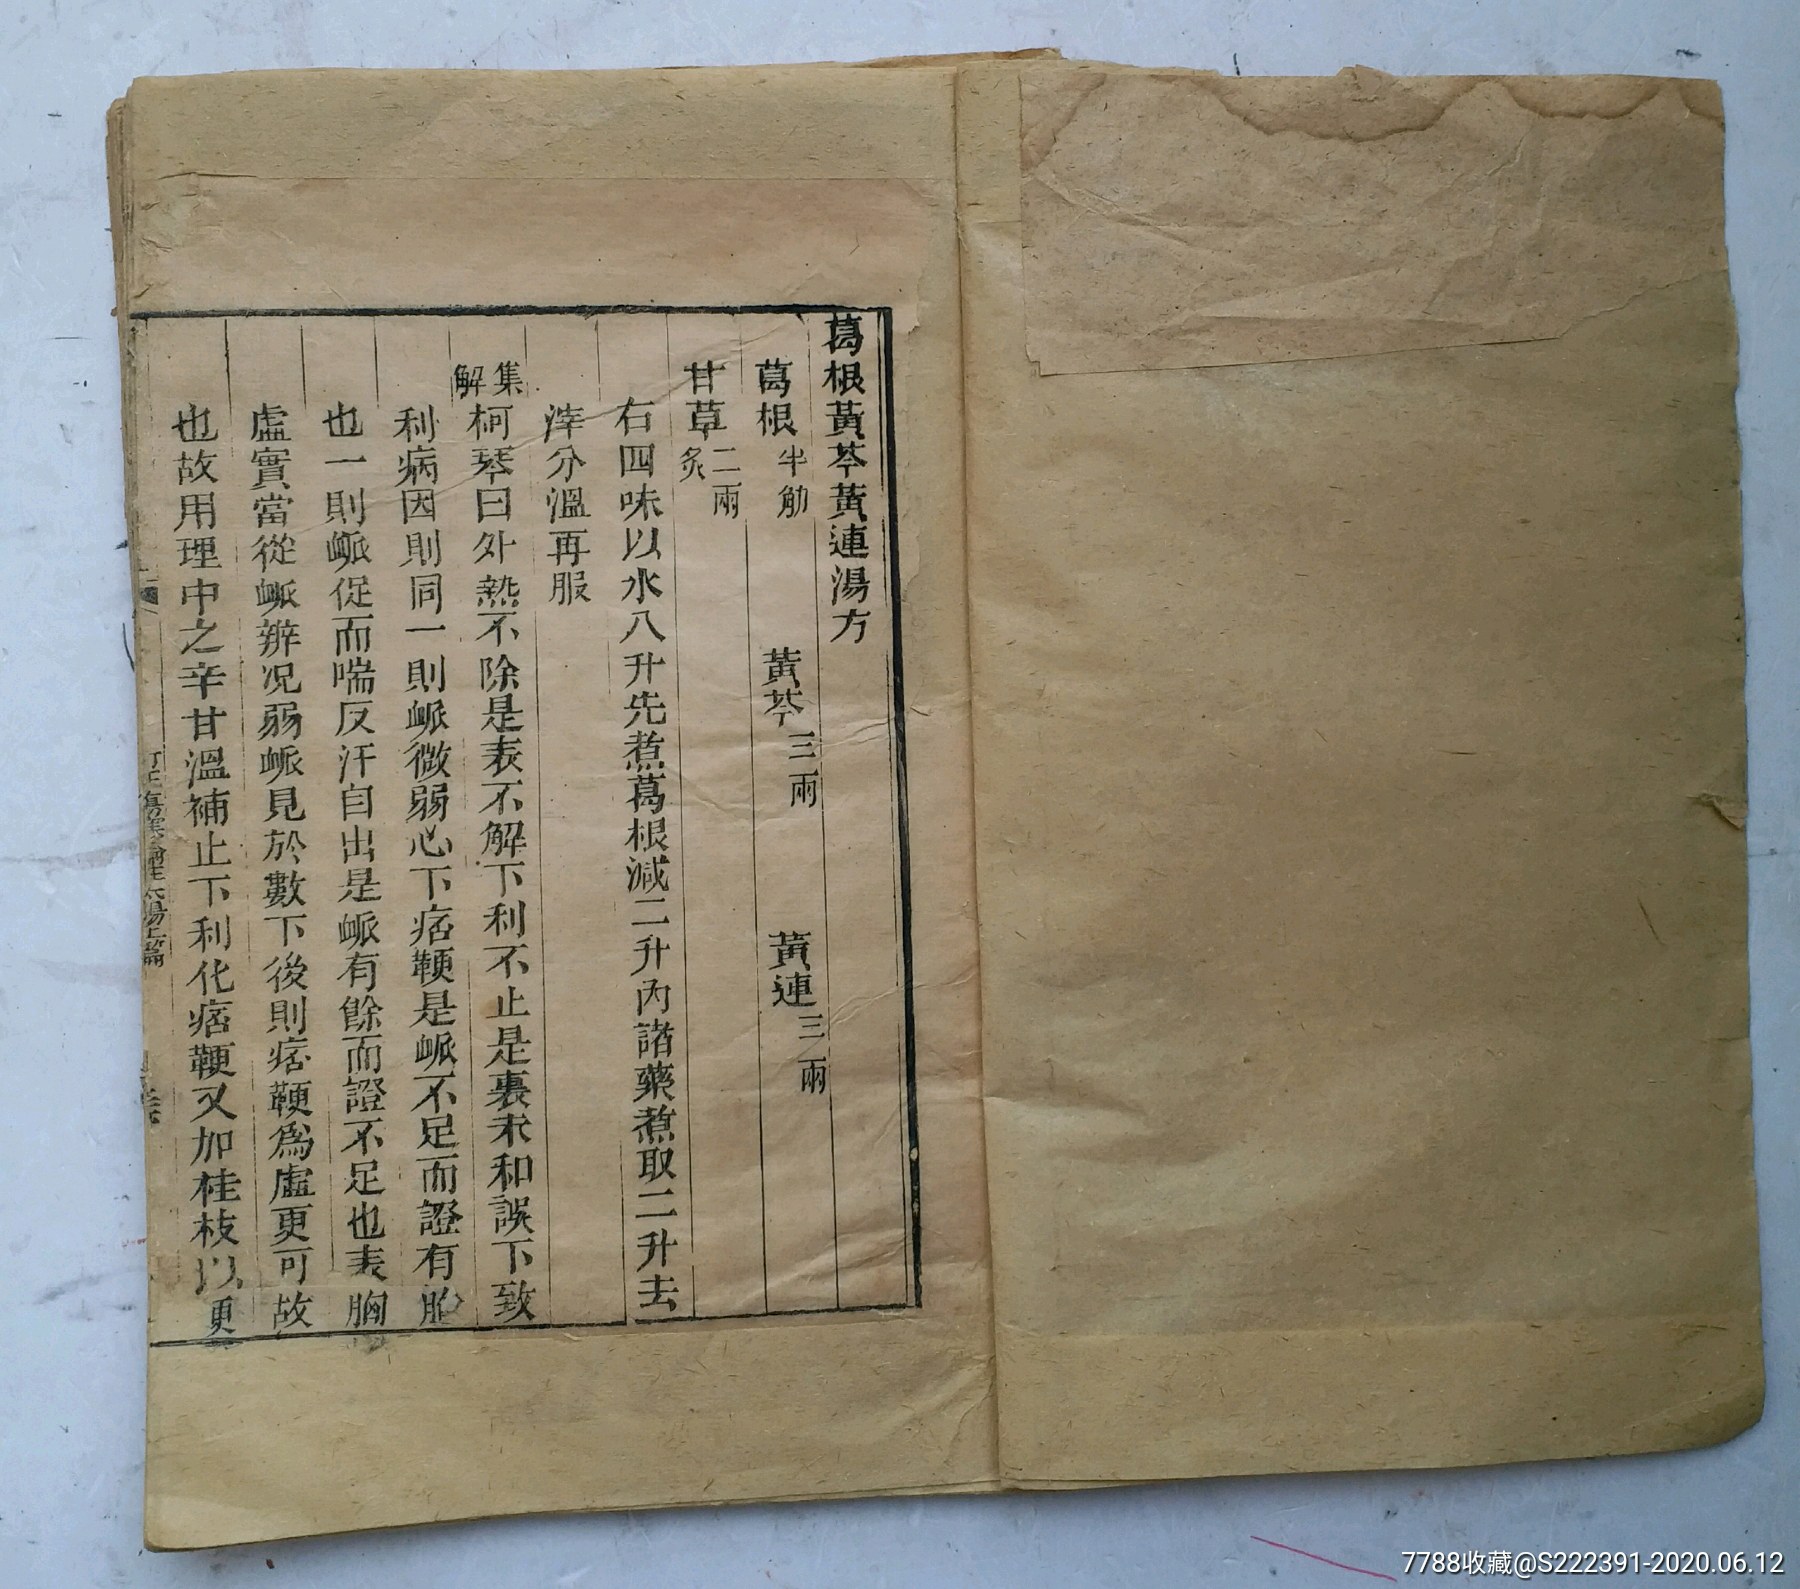 葛根黃芩黃連湯方
葛根半觔 黃芩三兩 黃連三兩
甘草炙二兩
右四味以水八升先煮葛根減二升內諸藥煮取二升去
滓分溫再服
集解 柯琴曰外熱不除是表不解下利不止是裏未和誤下致
利病因則同一則衇微弱心下痞鞕是衇不足而證有
也一則衇促而喘反汗自出是衇有餘而證不足也表胸
虛實當從衇辨况弱衇見於數下後則痞鞕為虛更可故
也故用理中之辛甘溫補止下利化痞鞕又加桂枝以更
訂正傷寒論註太陽上篇
7788收藏@S222391-2020.06.12